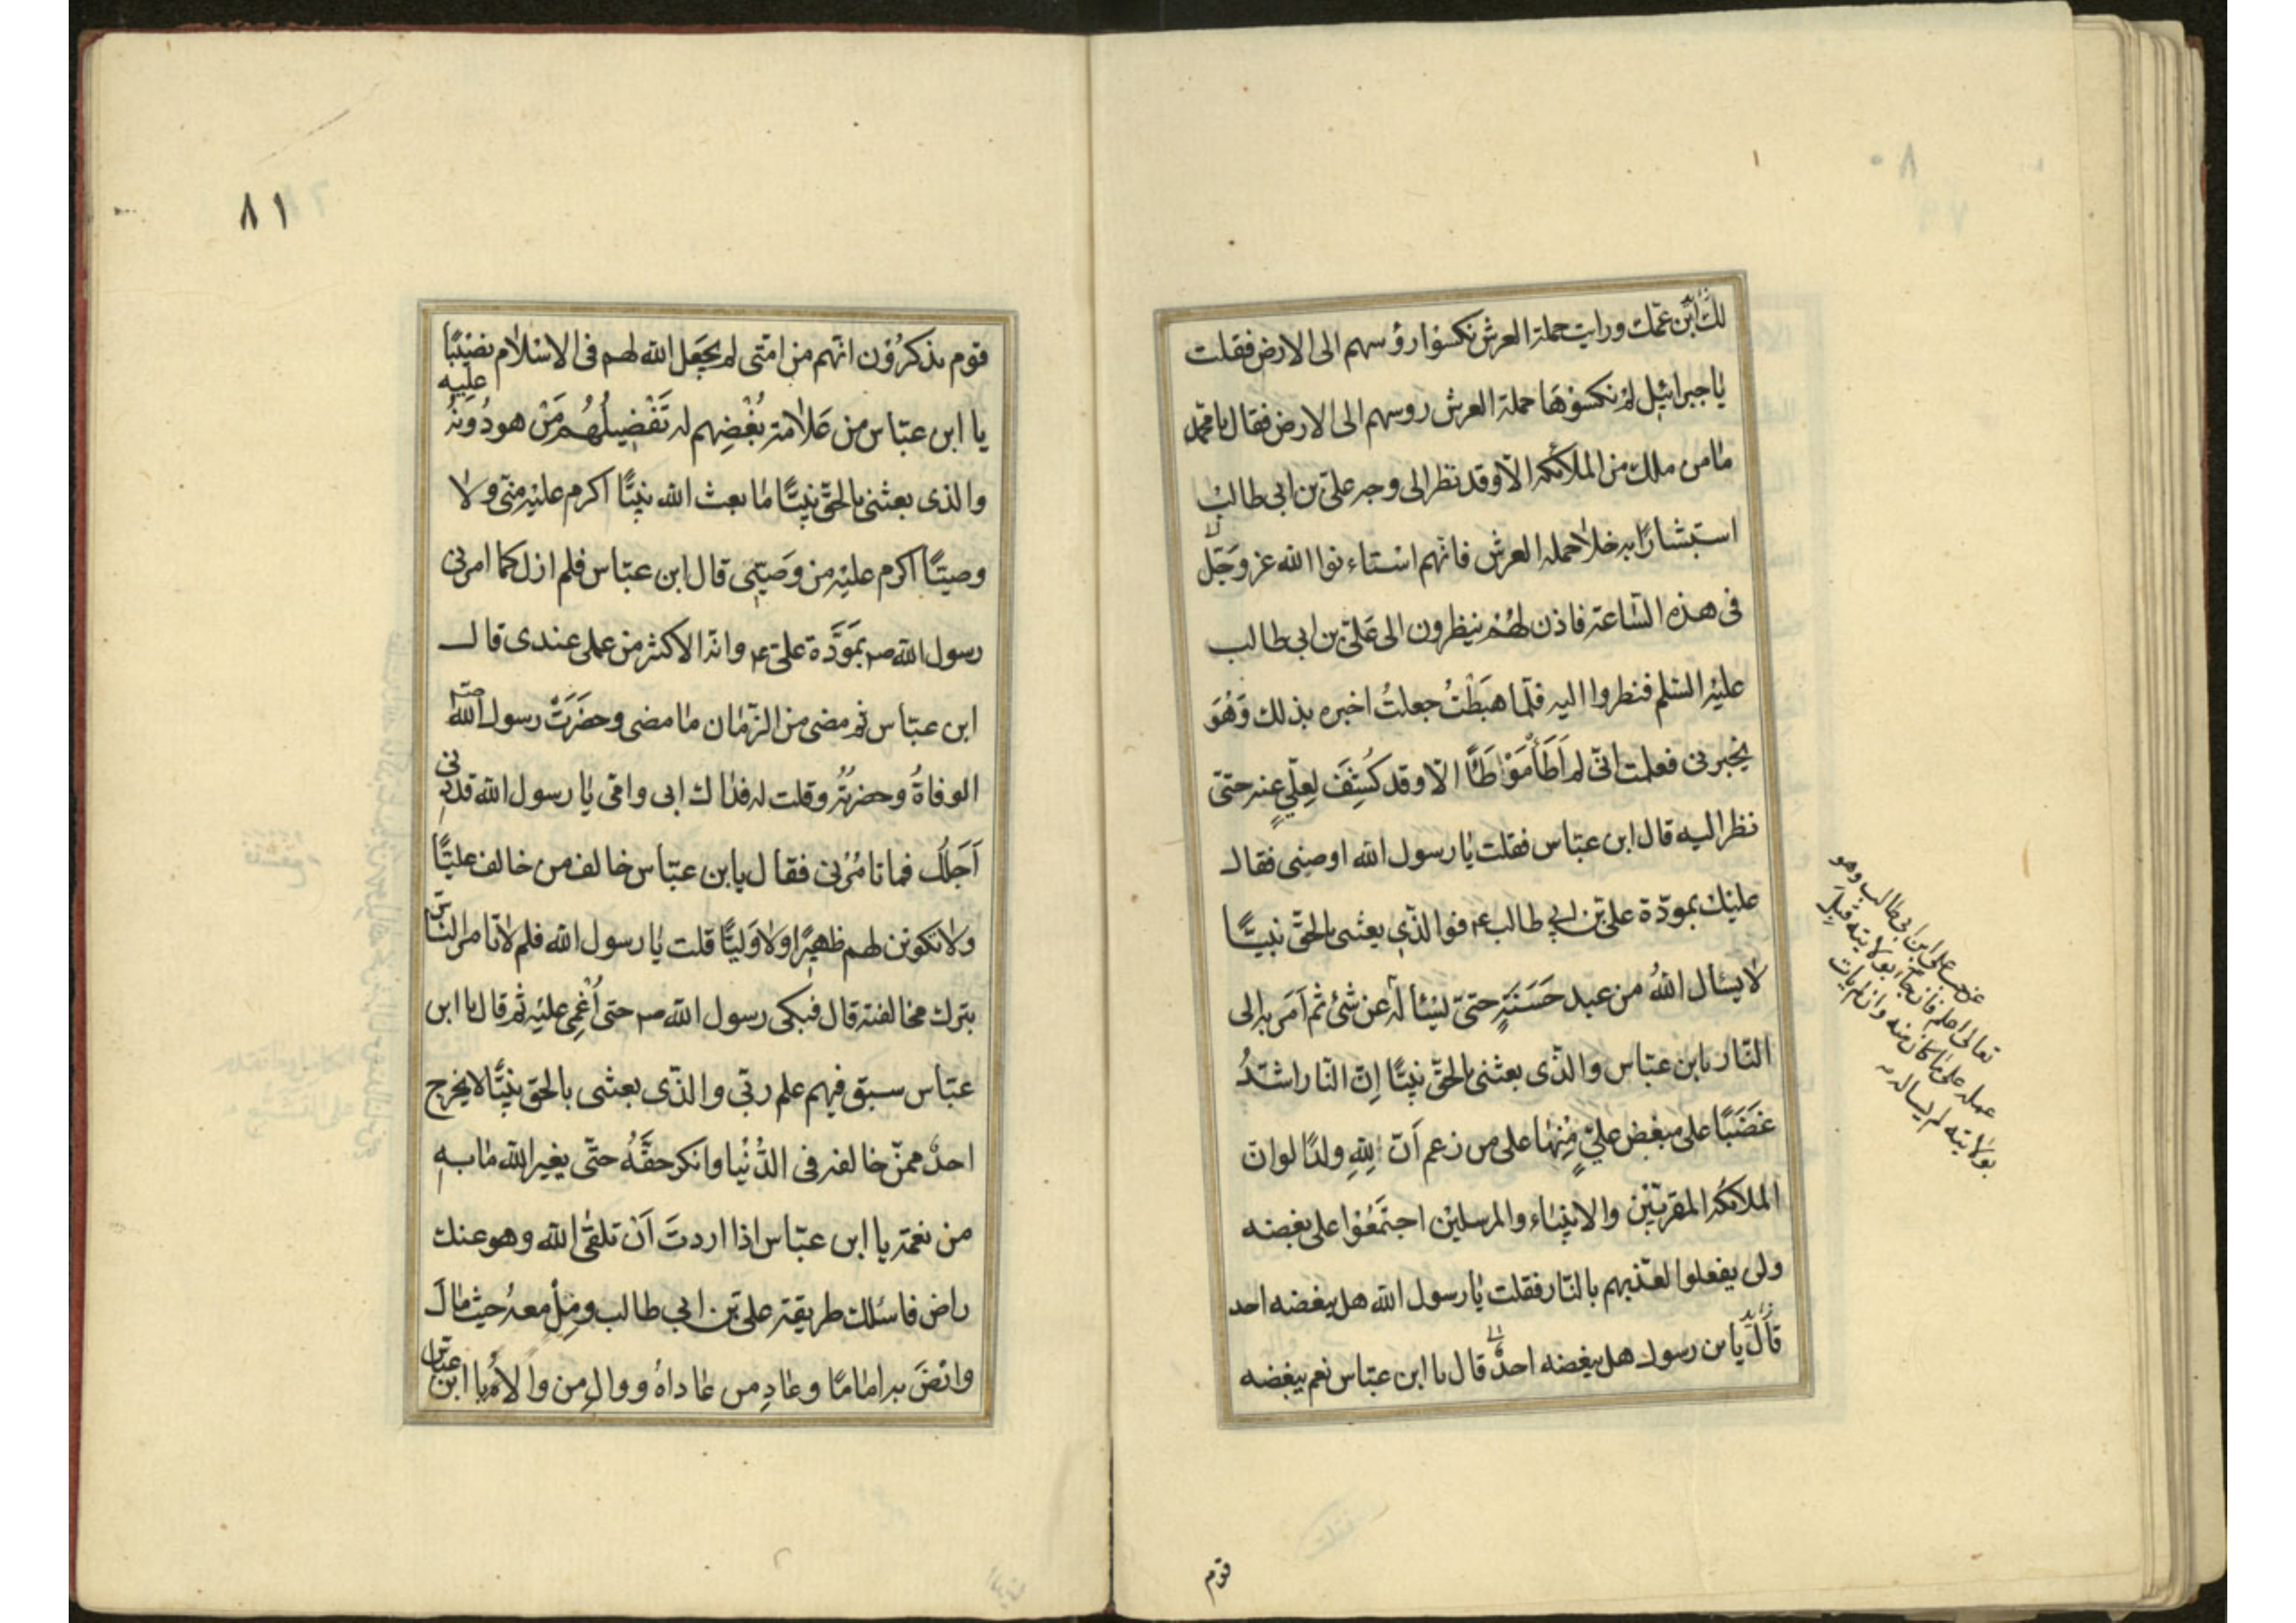 ٨٠
لك ابن عمّك ورايت حملة العرش نكسوا رؤسهم الى الارض فقلت
يا جبرائيل لم نكسوها حملة العرش روسهم الى الارض فقال يا محمّد
ما من ملك من الملائكة الّا وقد نظر الى وجه علىّ بن ابى طالب
استبشارًا به خلا حملة العرش فانّهم استاءنوا الله عز وَجَلّ
فى هذه السّاعة فاذن لهُم ينظرون الى عَلىّ بن ابى طالب
عليه السّلم فنظروا اليه فلّما هبَطْتُ جعلتُ اخبره بذلك وَهُوَ
يخبرنى فعلمت انّى لم اَطَأْ مَوْطَأً الّا وقد كُشِفَ لِعلّىٍ عنه حتىّ
نظر اليه قال ابن عبّاس فقلت يا رسول الله اوصنى فقال
عليك بمودّة علىّ بن ابي طالب ع فوا الّذي بعثنى بالحقّ نبيًّا
لا يسال اللهُ من عبد حَسَنَةٍ حتىّ يَسْأله عن شئ ثم اَمَر به الى
النّار يا بن عبّاس والذّى بعثنى بالحقّ نبيًّا اِنّ النّار اشدُّ
غضَبًا على مبغض علىٍّ مِنها على من زعم اَنّ لِلّهِ ولدًا لو انّ
الملائكة المقربّين والانبياء والمرسلين اجتَمعُوا على بغضه
ولن يفعلوا لعذّبهم بالنّار فقلت يا رسول الله هل يبغضه احد
قاَل يا بن رسول هل يبغضه احدٌ قال يا ابن عبّاس نعم يبغضه
على ابن ابى طالب وهو
تعالى اعلم فان جاء بولايته قبل
عمله على ما كان منه وان لم يات
بولايته لم يساله
قوم
٨١
قوم يذكرُون انّهم من امّتى لم يجعَل الله لهم فى الاسْلام نصيبًا
يا ابن عبّاس من عَلامة بُغْضِهم له تَفْضِيلُهُم مَنْ هو دُونهُ عليه
والذى بعثنى بالحقّ نبيًّا ما بعث الله نبيًّا اكرم عليْه منّى ولا
وصيًّا اكرم عليْه من وَصيّي قال ابن عبّاس فلم ازل كما امرنى
رسول الله ص بمَودَّة علىّ ع وانّه الاكثر من عملى عندى قال
ابن عبّاس ثم مضى من الزّمان ما مضى وحضَرَتْ رسول الله ص
الوفاةُ وحضرتُهُ وقلت له فداك ابى وامّى يا رسول الله قد دنى
اَجَلُك فما تامُرُنى فقال يا بن عبّاس خالف من خالف عليًّا
ولا تكونن لهم ظهيرًا ولا وَليًّا قلت يا رسول الله فلم لا تامر النّاس
بترك مخالفته قال فبكى رسول الله ص حتى اُغْمِى عليْه ثم قال يا ابن
عبّاس سبق فيهم علم ربّي والذّى بعثنى بالحق نبيًّا لا يخرج
احدٌ ممنّ خالفه فى الدُّنْيا وانكر حقَّهُ حتّى يغير الله ما به
من نعمة يا ابن عبّاس اذا اردتَ اَنْ تلقى الله وهو عنك
راض فاسلك طريقة علىّ بن ابي طالب ومِلْ معهُ حيث مالَ
وارْضَ به امامًا وعَادِ من عَاداهُ ووالِ من والاهُ يا ابن عبّاس